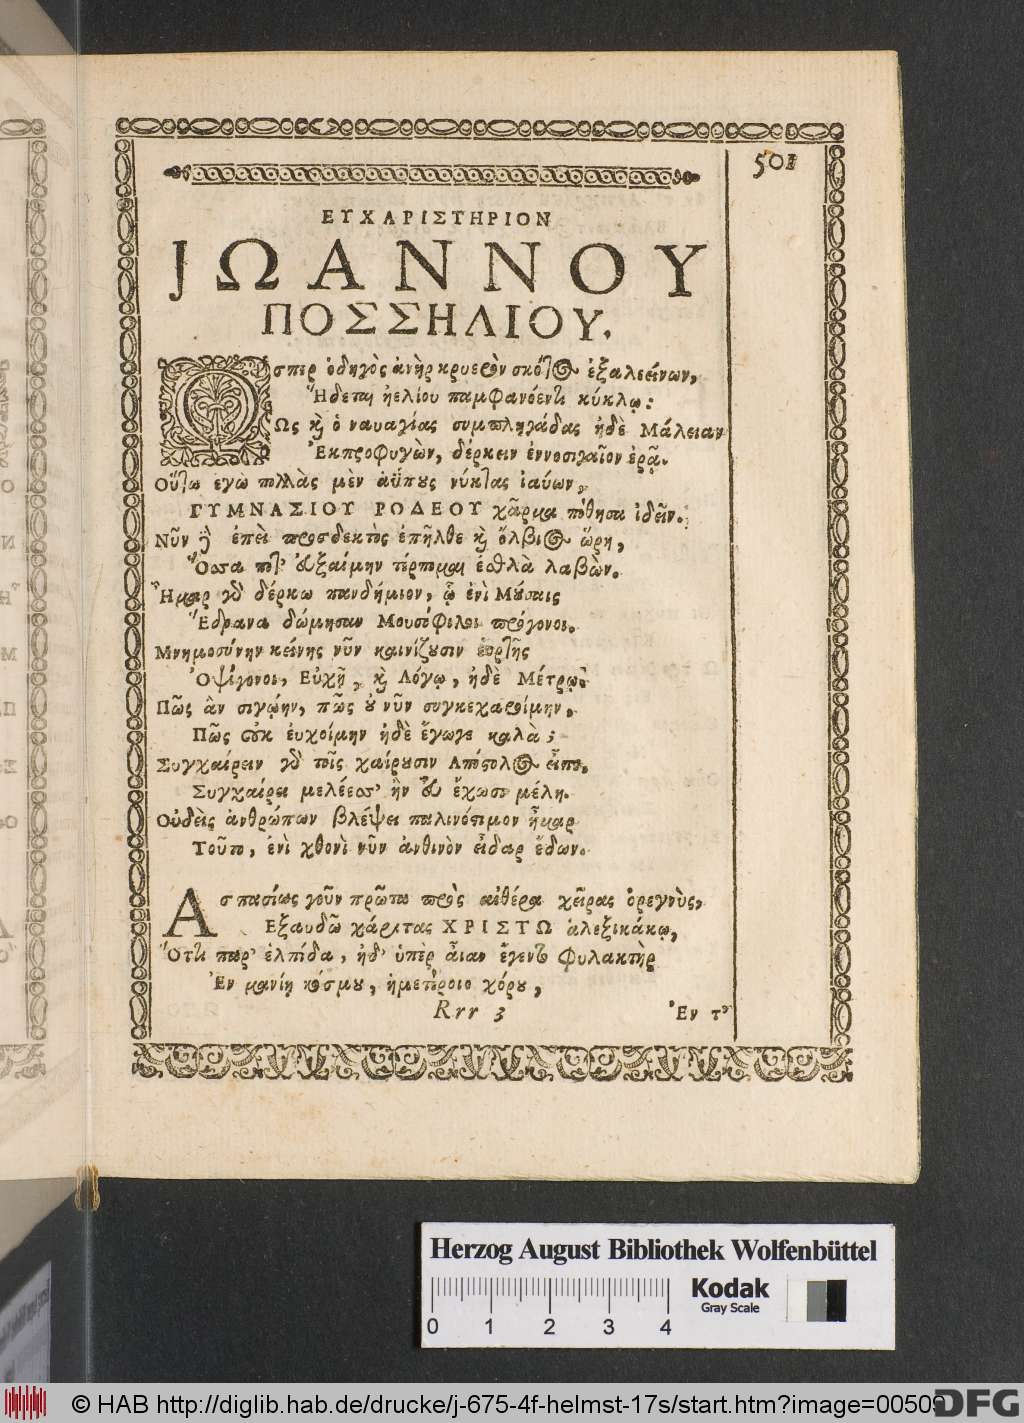 501
ΕΥΧΑΡΙΣΤΗΡΙΟΝ
ΙΩΑΝΝΟΥ
ΠΟΣΣΗΛΙΟΥ.
Ωσπερ ὁδηγὸς ἀνὴρ κρυερὸν σκότος ἐξαλεείνων,
Ἥδεται ἠελίου παμφανόεντι κύκλῳ:
Ὡς καὶ ὁ ναυαγίας συμπληγάδας ἠδὲ Μάλειαν
Ἐκπροφυγὼν, δέρκειν ἐννοσιγαῖον ἐρᾷ.
Οὕτω ἐγὼ πολλὰς μὲν ἀΰπνους νύκτας ἰαύων,
ΓΥΜΝΑΣΙΟΥ ΡΟΔΕΟΥ χᾶρμα πόθησα ἰδεῖν.
Νῦν δὲ ἐπεὶ προσδεκτὸς ἐπῆλθε καὶ ὄλβιος ὥρη,
Ὅσσα ποτ' εὐξαίμην τέρπομαι ἐσθλὰ λαβὼν.
Ἦμαρ γὰρ δέρκω πανδήμιον, ᾧ ἐνὶ Μούσαις
Ἕδρανα δώμησαν Μουσόφιλοι πρόγονοι.
Μνημοσύνην κείνης νῦν καινίζουσιν ἑορτῆς
Ὀψίγονοι, Εὐχῇ, καὶ Λόγῳ, ἠδὲ Μέτρῳ.
Πῶς ἂν σιγῴην, πῶς οὐ νῦν συγκεχαροίμην,
Πῶς οὐκ εὐχοίμην ἠδὲ ἔγωγε καλὰ;
Συγχαίρειν γὰρ τοῖς χαίρουσιν Απόστολος εἶπε,
Συγχαίρει μελέεσσ' ἢν εὖ ἔχωσι μέλη.
Οὐδεὶς ἀνθρώπων βλέψει παλινόστιμον ἦμαρ
Τοῦτο, ἐνὶ χθονὶ νῦν ἀνθινὸν εἶδαρ ἔδων.
Ασπασίως γοῦν πρῶτα πρὸς αἰθέρα χεῖρας ὀρεγνὺς,
Εξαυδῶ χάριτας ΧΡΙΣΤΩ ἀλεξικάκῳ,
Ὅττι παρ' ἐλπίδα, ἠδ' ὑπὲρ αἶσαν ἔγεντο Φυλακτὴρ
Ἐν μανίῃ κόσμου, ἡμετέροιο χόρου,
Rrr 3
Ἐν τ
Herzog August Bibliothek Wolfenbüttel
Kodak
Gray Scale
0 1 2 3 4
© HAB http://diglib.hab.de/drucke/j-675-4f-helmst-17s/start.htm?image=00509
DFG